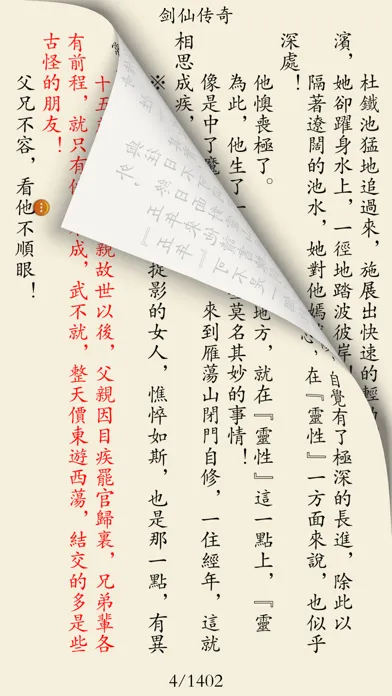 剑仙传奇
杜鐵池猛地追過來,施展出快速的輕
濱,她卻躍身水上,一徑地踏波彼岸!
自覺有了極深的長進,除此以
隔著遼闊的池水,她對他嫣
心,在『靈性』一方面來說,也似乎
深處!
他懊喪極了。
地方,就在『靈性』這一點上,『靈
為此,他生了一
莫名其妙的事情!
像是中了魔
來到雁蕩山閉門自修,一住經年,這就
相思成疾,
※
捉影的女人,憔悴如斯,也是那一點,有異
十五
親故世以後,父親因目疾罷官歸裏,兄弟輩各
有前程,就只有他
成,武不就,整天價東遊西蕩,結交的多是些
古怪的朋友!
父兄不容,看他不順眼!
4/1402